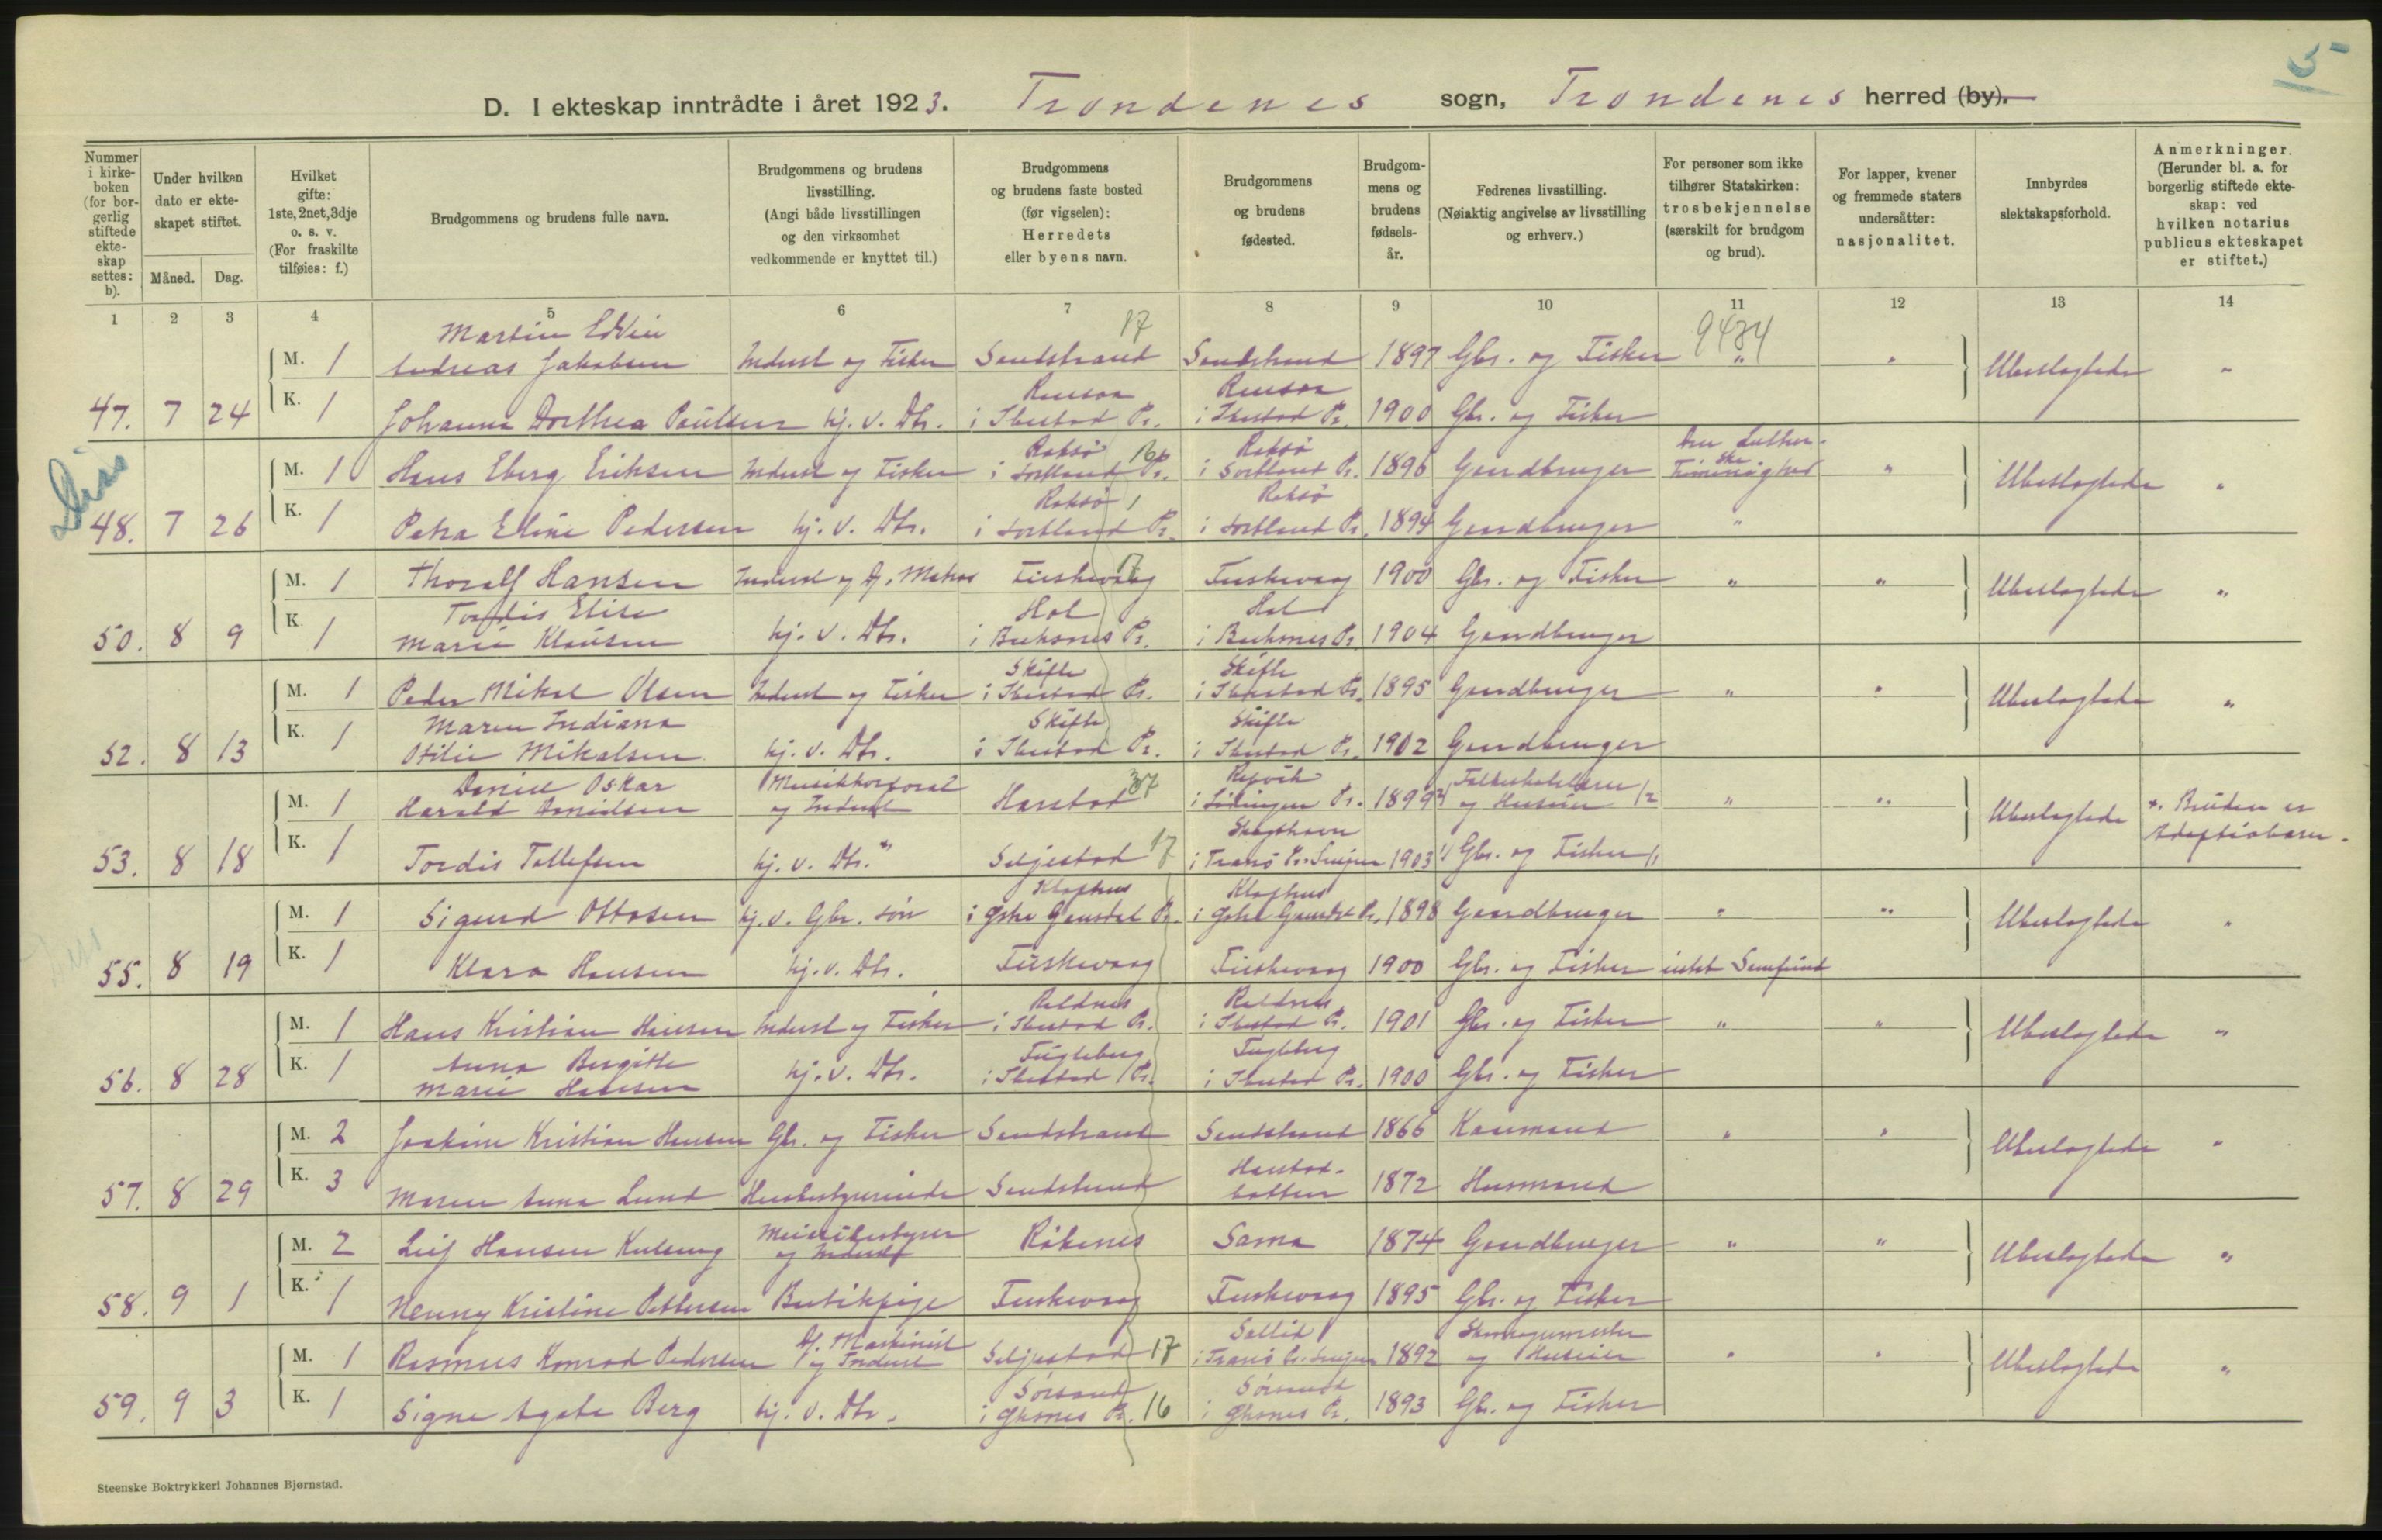 5
D. I ekteskap inntrådte i året 1923. Trondenes sogn, Trondenes herred (by).
Nummer i kirkeboken (for borgerlig stiftede ekteskap settes: b).
Under hvilken dato er ekteskapet stiftet.
Måned. Dag.
Hvilket gifte: 1ste, 2net, 3dje o. s. v. (For fraskilte tilføies: f.)
Brudgommens og brudens fulle navn.
Brudgommens og brudens livsstilling. (Angi både livsstillingen og den virksomhet vedkommende er knyttet til.)
Brudgommens og brudens faste bosted (før vigselen): Herredets eller byens navn.
Brudgommens og brudens fødested.
Brudgommens og brudens fødselsår.
Fedrenes livsstilling. (Nøiaktig angivelse av livsstilling og erhverv.)
For personer som ikke tilhører Statskirken: trosbekjennelse (særskilt for brudgom og brud).
For lapper, kvener og fremmede staters undersåtter: nasjonalitet.
Innbyrdes slektskapsforhold.
Anmerkninger. (Herunder bl. a. for borgerlig stiftede ekteskap: ved hvilken notarius publicus ekteskapet er stiftet.)
1 2 3 4 5 6 7 8 9 10 11 12 13 14
17 9484
M. 1 Martin Edvin Andreas Jakobsen Inderst og Fisker Sandstrand Sandstrand 1897 Gbr. og Fisker " " Ubeslægtede "
47. 7 24 K. 1 Johanna Dorthea Paulsen hj. v. Dtr. i Ibestad Pr. i Ibestad Pr. 1900 Gbr. og Fisker
Diss
M. 1 Hans Eberg Eriksen Inderst og Fisker Roksø i Sortland Pr. 16 Roksø i Sortland Pr. 1896 Gaardbruger " Ubeslægtede "
48. 7 26 K. 1 Petra Eline Pedersen hj. v. Dtr. Roksø i Sortland Pr. Roksø i Sortland Pr. 1894 Gaardbruger "
M. 1 Thoralf Hansen Inderst og Fuskevaag 17 Fuskevaag 1900 Gbr. og Fisker " " Ubeslægtede "
50. 8 9 K. 1 Tordis Elise Marie Klausen hj. v. Dtr. Hol i Buksnes Pr. Hol i Buksnes Pr. 1904 Gaardbruger
M. 1 Peder Mikal Olsen Inderst og Fisker Skifte i Ibestad Pr. Skifte i Ibestad Pr. 1895 Gaardbruger " " Ubeslægtede "
52. 8 13 K. 1 Maren Indiana Otilie Mikalsen hj. v. Dtr. Skifte i Ibestad Pr. Skifte i Ibestad Pr. 1902 Gaardbruger
M. 1 Daniel Oskar Harald Danielsen Musikkorporal og Inderst Harstad 37 i Lødingen Pr. 1899 og Huseier " " Ubeslægtede *. Bruden er Adoptivbarn.
53. 8 18 K. 1 Tordis Tollefsen hj. v. Dtr. * Seljestad 17 i Tranø Pr. Senjen 1903 Gbr. og Fisker
M. 1 Sigurd Ottosen hj. v. Gbr. søn Klophus Klophus 1898 Gaardbruger " " Ubeslægtede "
55. 8 19 K. 1 Klara Hansen hj. v. Dtr. Fuskevaag Fuskevaag 1900 Gbr. og Fisker intet Samfund
M. 1 Hans Kristian Hansen Inderst og Fisker i Ibestad Pr. i Ibestad Pr. 1901 Gbr. og Fisker " " Ubeslægtede "
56. 8 28 K. 1 Anna Bergitte Marie Hansen hj. v. Dtr. Fugleberg i Ibestad Pr. Fugleberg i Ibestad Pr. 1900 Gbr. og Fisker
M. 2 Joakim Kristian Hansen Gbr. og Fisker Sandstrand Sandstrand 1866 " " Ubeslægtede "
57. 8 29 K. 3 Maren Anna Lund Husbestyrerinde Sandstrand Harstadbotten 1872 Husmand
M. 2 Leif Hansen og Inderst Røkenes Sama 1874 Gaardbruger " " Ubeslægtede "
58. 9 1 K. 1 Henny Kristine Pettersen Butikpige Fuskevaag Fuskevaag 1895 Gbr. og Fisker
M. 1 Rasmus Konrad Pedersen Maskinist og Inderst Seljestad 17 i Tranø Pr. Senjen 1892 Skomagermester og Huseier " " Ubeslægtede "
59. 9 3 K. 1 Signe Agata Berg hj. v. Dtr. Sørsand i Øksnes Pr. 16 Sørsand i Øksnes Pr. 1893 Gbr. og Fisker
Steenske Boktrykkeri Johannes Bjørnstad.